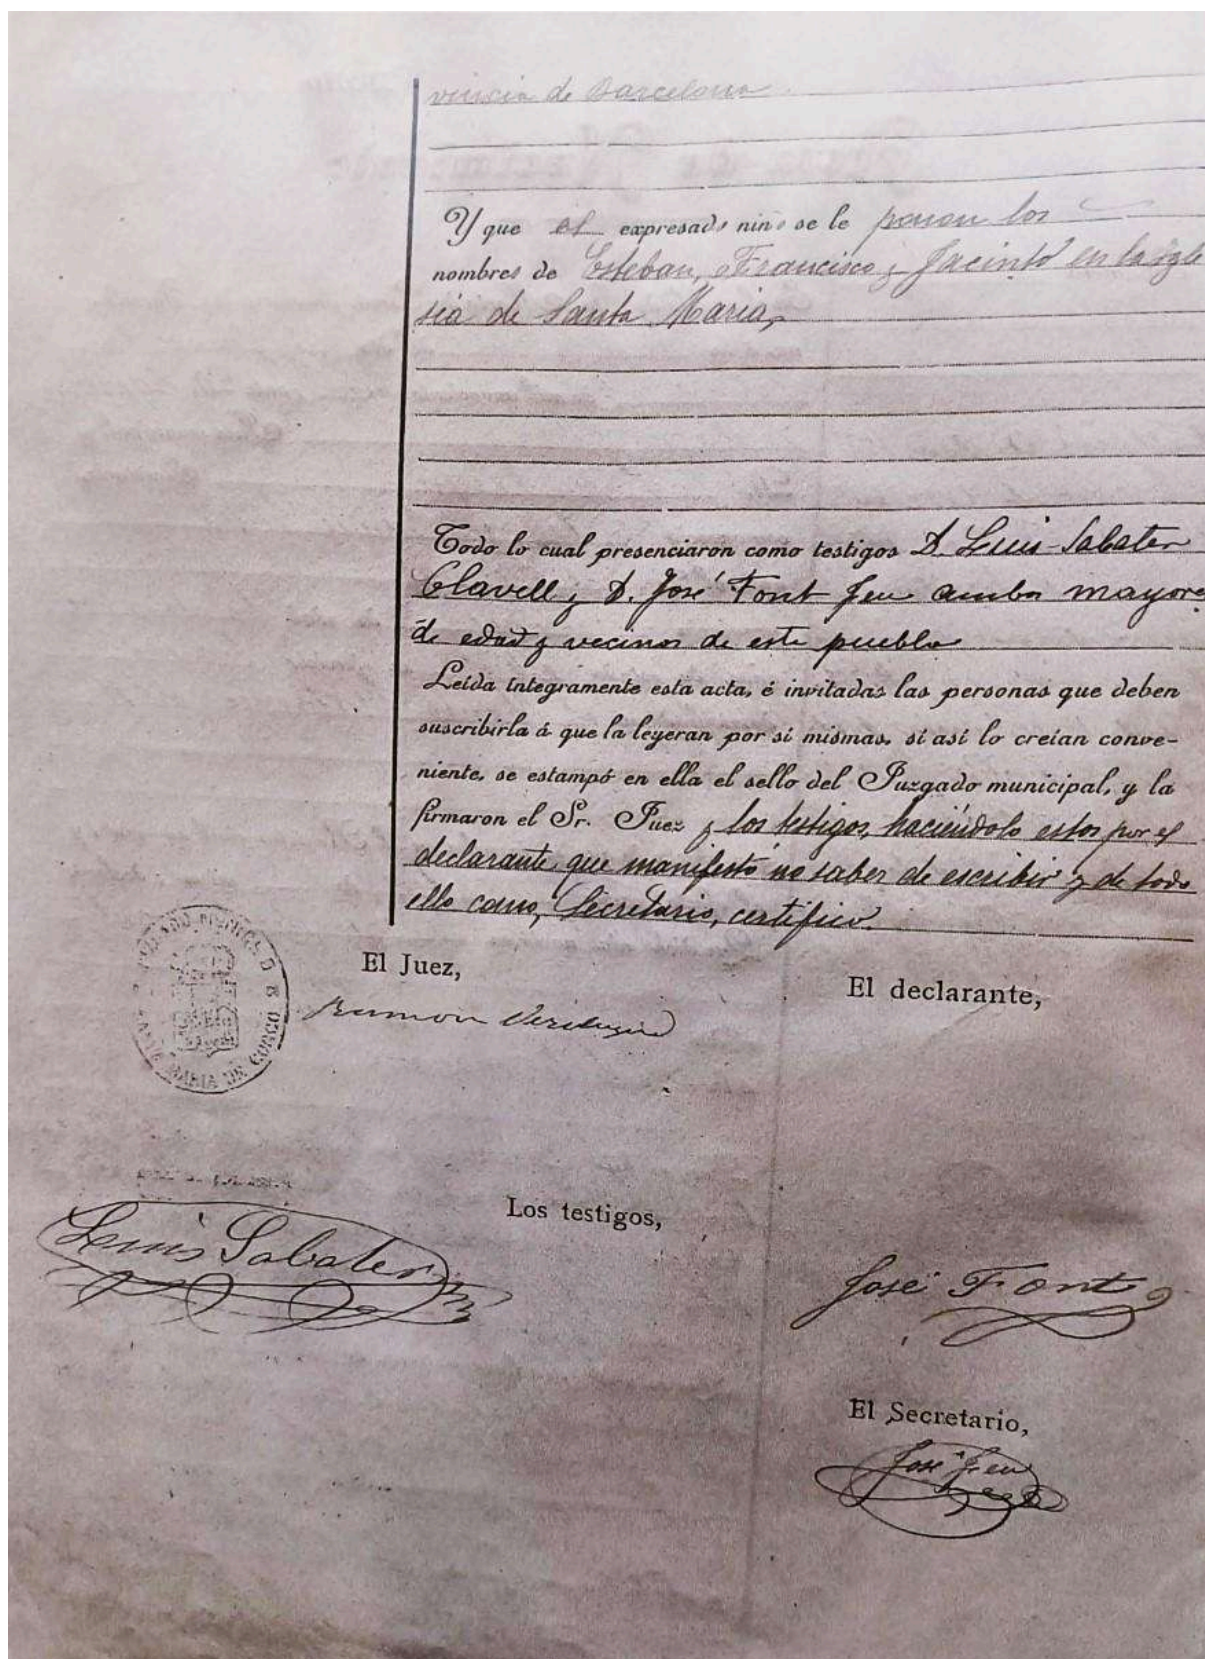 vincia de Barcelona
Y que el expresado niño se le ponen los
nombres de Esteban, Francisco y Jacinto en la Igle
sia de Santa Maria,
Todo lo cual presenciaron como testigos D. Luis Sabater
Clavell y D. José Font Feu ambos mayores
de edad y vecinos de este pueblo
Leída íntegramente esta acta, é invitadas las personas que deben
suscribirla á que la leyeran por sí mismas, si así lo creían conve-
niente, se estampó en ella el sello del Juzgado municipal, y la
firmaron el Sr. Juez y los testigos, haciéndolo estos por el
declarante que manifestó no saber de escribir y de todo
ello como, Secretario, certifico.
El Juez,
El declarante,
Ramon
MARIA DE CORCÓ
Los testigos,
Luis Sabater
José Font
El Secretario,
José Feu